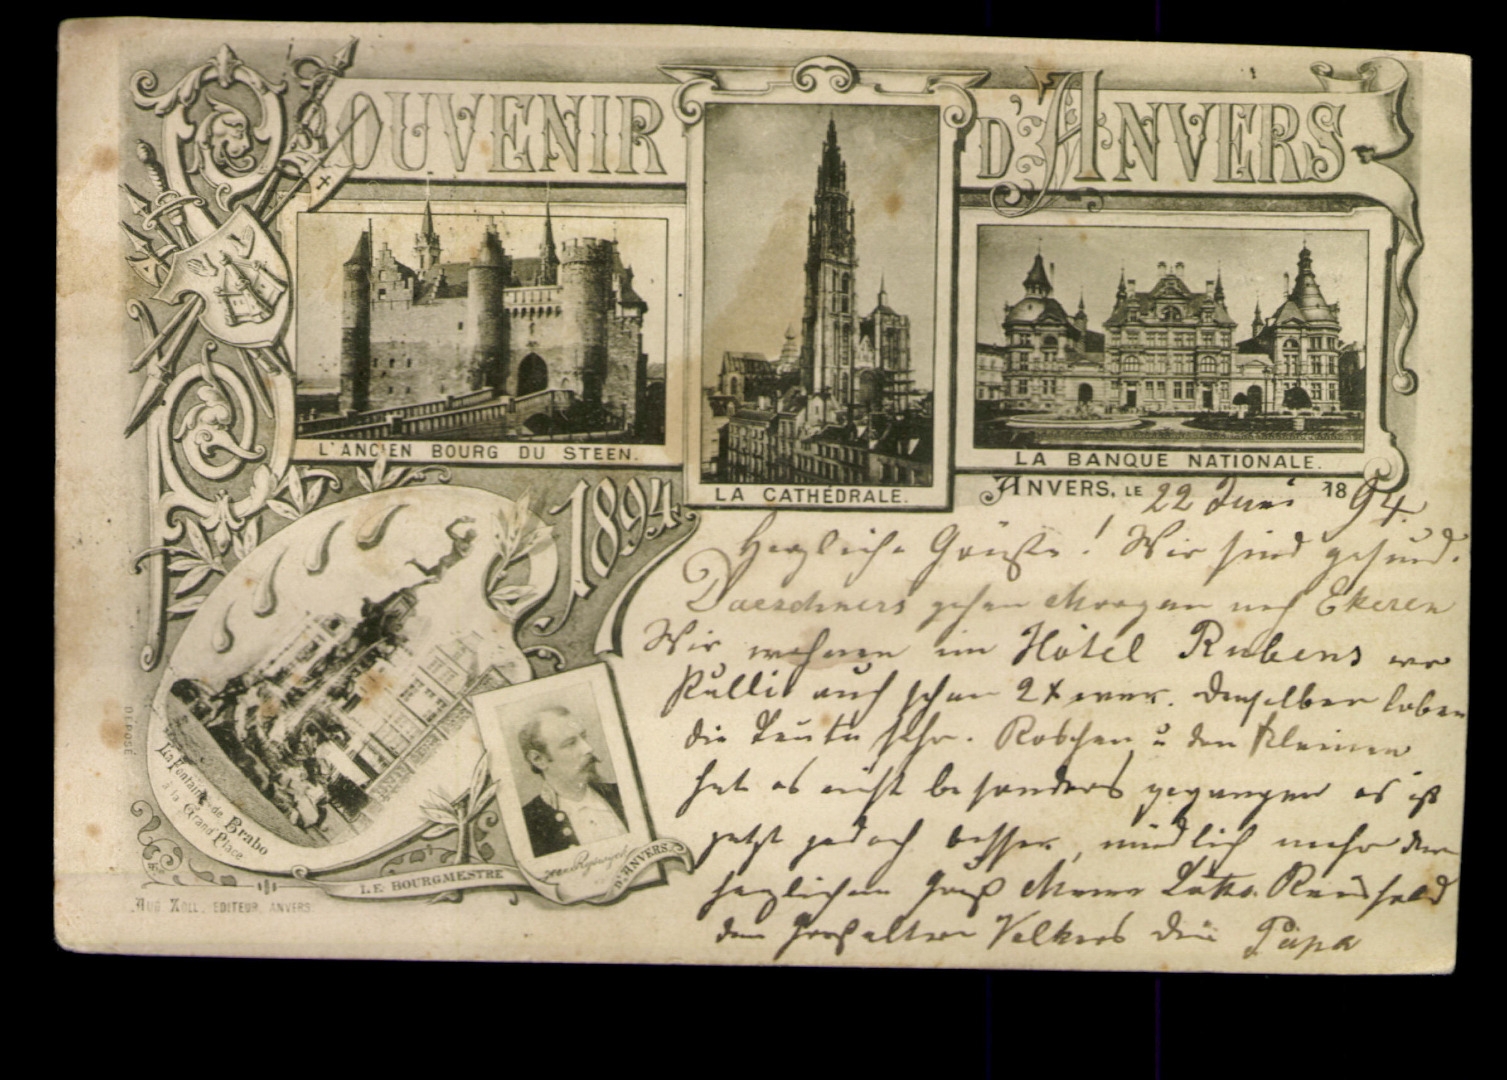 SOUVENIR D'ANVERS
L'ANCIEN BOURG DU STEEN.
LA CATHÉDRALE.
LA BANQUE NATIONALE.
1894
ANVERS, LE 22 Juni 1894.
Herzliche Grüße! Wir sind gesund.
Daeschners gehen Morgen nach Ekeren
Wir wohnen im Hôtel Rubens wo
auch schon 2x war. Denselben loben
die Leute sehr. Röschen u den Kleinen
hat es nicht besonders gegangen es ist
jetzt jedoch besser, mündlich mehr
herzlichen Gruß Mama
den Großeltern Volkers Dein Papa
La Fontaine de Brabo
à la Grand'Place
LE BOURGMESTRE D'ANVERS
DÉPOSÉ
AUG. ZOLL, EDITEUR, ANVERS.